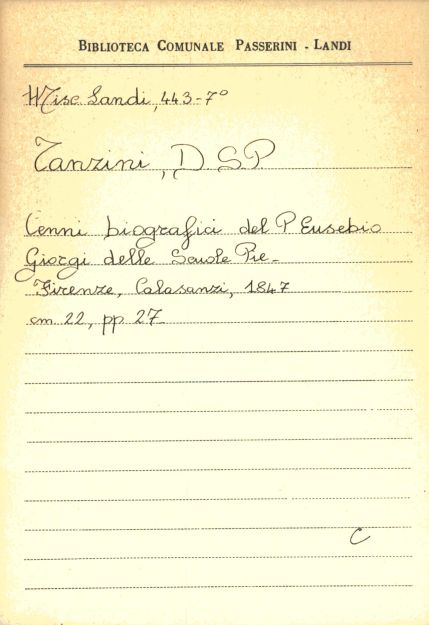 BIBLIOTECA COMUNALE PASSERINI - LANDI
Misc. Landi, 443-7°
Tanzini, D. S. P.
Cenni biografici del P. Eusebio
Giorgi delle Scuole Pie-
Firenze, Calasanzi, 1847
cm 22, pp 27-
C